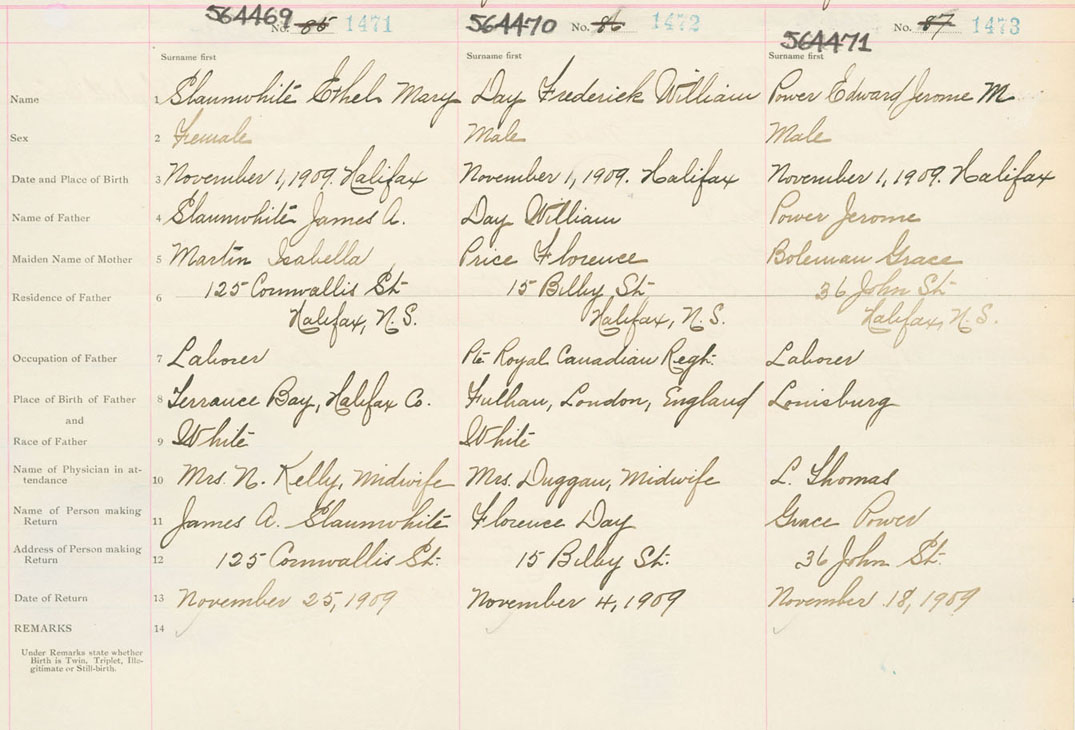 564469 No. 85 1471 564470 No. 86 1472 564471 No. 87 1473
Surname first Surname first Surname first
Name Slaunwhite Ethel Mary Day Frederick William Power Edward Jerome M
Sex 2 Female Male Male
Date and Place of Birth 3 November 1, 1909. Halifax November 1, 1909. Halifax November 1, 1909. Halifax
Name of Father 4 Slaunwhite James A. Day William Power Jerome
Maiden Name of Mother 5 Martin Isabella Price Florence Boleman Grace
Residence of Father 6 125 Cornwallis St. 15 Bilby St. 36 John St.
Halifax, N.S. Halifax, N.S. Halifax, N.S.
Occupation of Father 7 Laborer Pte Royal Canadian Regt. Laborer
Place of Birth of Father 8 Terrance Bay, Halifax Co. Fulham, London, England Louisburg
and
Race of Father 9 White White
Name of Physician in at-
tendance 10 Mrs. N. Kelly, Midwife Mrs. Duggan, Midwife L. Thomas
Name of Person making
Return 11 James A. Slaunwhite Florence Day Grace Power
Address of Person making
Return 12 125 Cornwallis St. 15 Bilby St. 36 John St.
Date of Return 13 November 25, 1909 November 4, 1909 November 18, 1909
REMARKS 14
Under Remarks state whether
Birth is Twin, Triplet, Ille-
gitimate or Still-birth.